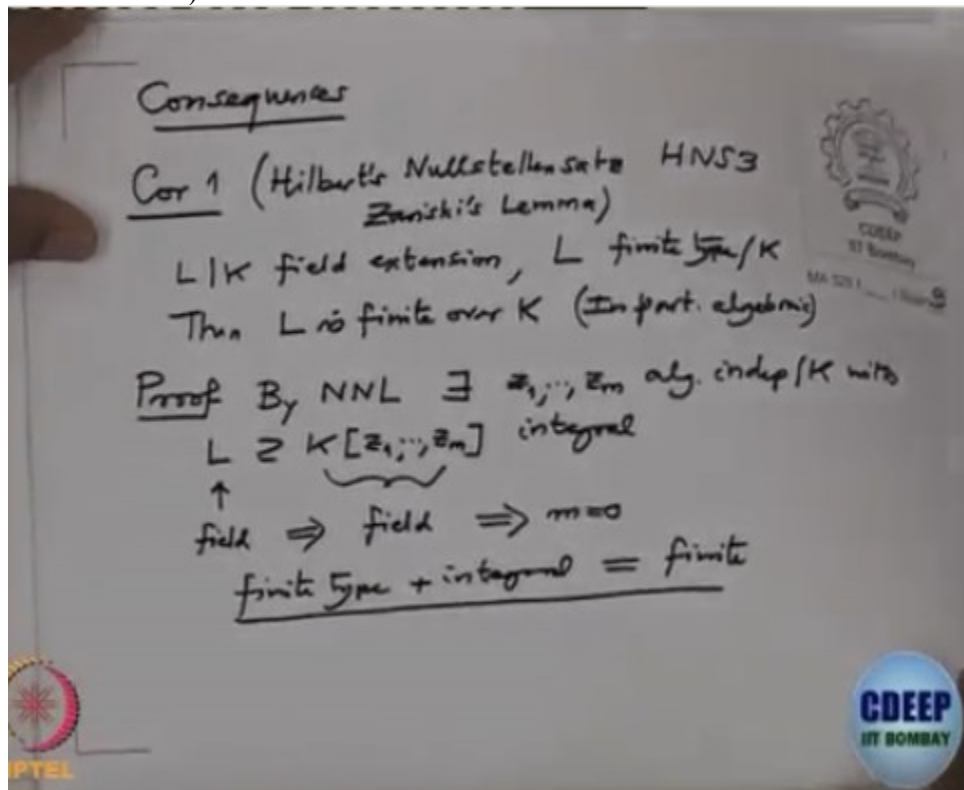 Consequences
Cor 1 (Hilbert's Nullstellensatz HNS3
Zariski's Lemma)
L|K field extension, L finite type/K
Then L is finite over K (In part. algebraic)
Proof By NNL ∃ z₁,..,zₘ alg. indep/K with
L ⊇ K[z₁,..,zₘ] integral
↑
field ⇒ field ⇒ m=0
finite type + integral = finite
CDEEP
IIT Bombay
CDEEP
IIT BOMBAY
PTEL